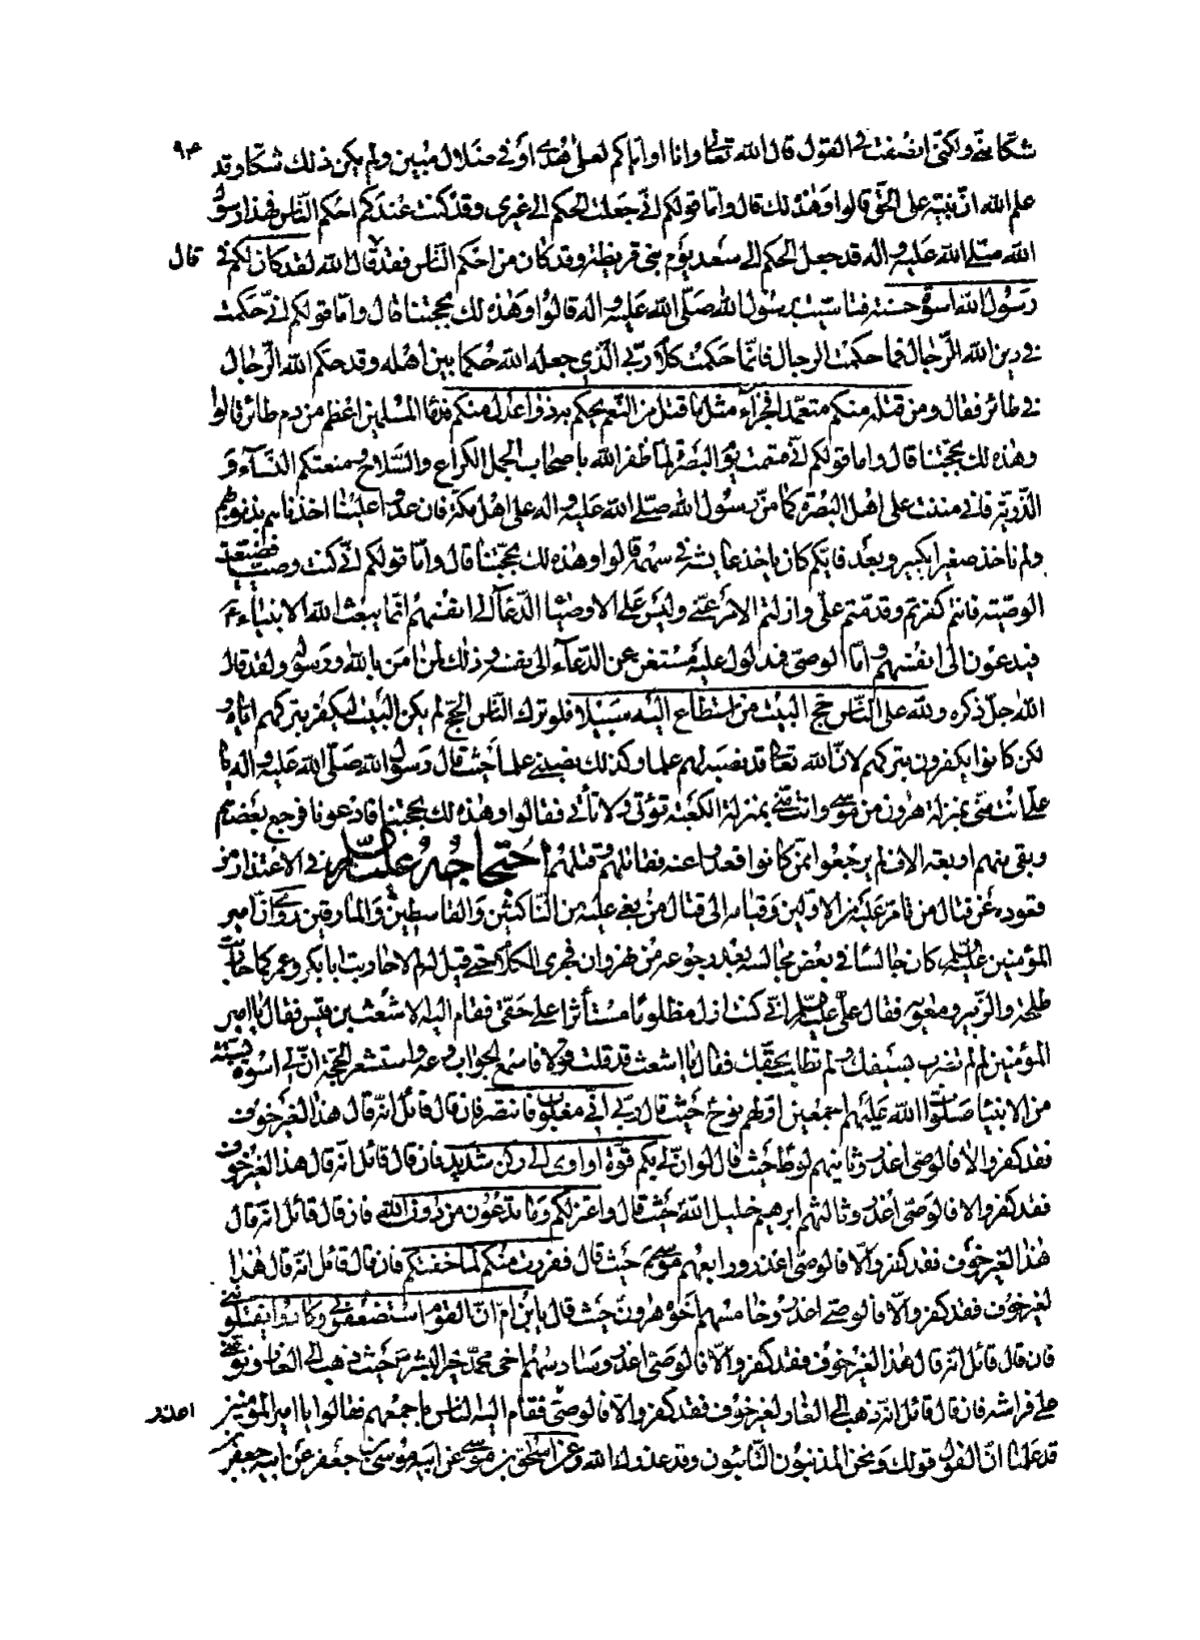 شكا منّي ولكنّي انصفت في القول قال الله تعالى وانا او اياكم لعلى هدى او في ضلال مبين ولم يكن ذلك شكا وقد
علم الله انّ نبيّه على الحقّ قالوا وهذه لك قال وامّا قولكم انّي جعلت الحكم الى غيري وقد كنت عندكم احكم النّاس فهذا رسول
الله صلّى الله عليه واله قد جعل الحكم الى سعد يوم بني قريظة وقد كان من احكم النّاس فقد قال الله لقد كان لكم في
قال
رسول الله اسوة حسنة فتاسّيت برسول الله صلّى الله عليه واله قالوا وهذه لك بحجّتنا قال وامّا قولكم انّي حكمت
في دين الله الرّجال فما حكمت الرجال فانّما حكمت كلام ربّي الّذي جعله الله حكما بين اهله وقد حكم الله الرّجال
في طائر فقال ومن قتله منكم متعمّدا فجزاء مثل ما قتل من النّعم يحكم به ذوا عدل منكم فدماء المسلمين اعظم من دم طائر قالوا
وهذه لك بحجّتنا قال واما قولكم انّي قسمت يوم البصرة لما ظفر الله باصحاب الجمل الكراع والسّلاح ومنعتكم النّساء و
الذّرية فاني مننت على اهل البصرة كما منّ رسول الله صلّى الله عليه واله على اهل مكة فان عدوا علينا اخذناهم بذنوبهم
ولم ناخذ صغيرا بكبير وبعد فايّكم كان ياخذ عايشة في سهمه قالوا وهذه لك بحجّتنا قال وامّا قولكم انّي كنت وصيّا فضيّعت
الوصيّة فانتم كفرتم وقدمتم عليّ وازلتم الامر عنّي وليس على الاوصياء الدّعاء الى انفسهم انّما يبعث الله الانبياء ع
فيدعون الى انفسهم وامّا الوصيّ فمدلول عليه مستغن عن الدّعاء الى نفسه وذلك لمن امن بالله ورسوله ولقد قال
الله جلّ ذكره ولله على النّاس حج البيت من استطاع اليه سبيلا فلو ترك النّاس الحجّ لم يكن البيت ليكفر بتركهم اياه و
لكن كانوا يكفرون بتركهم لانّ الله تعالى قد نصبه لهم علما وكذلك نصبني علما حيث قال رسول الله صلّى الله عليه واله يا
عليّ انت منّي بمنزلة هرون من موسى وانت منّي بمنزلة الكعبة تؤتى ولا تأتي فقالوا وهذه لك بحجّتنا فاذعنوا فرجع بعضهم
وبقي منهم اربعة الاف لم يرجعوا ممن كانوا قعدوا عنه فقاتلهم وقتلهم احتجاجه عليه السلام في الاعتذار من
قعوده عن قتال من تامّر عليه من الاولين وقيامه الى قتال من بغى عليه من النّاكثين والقاسطين والمارقين روي انّ امير
المؤمنين عليه السلام كان جالسا في بعض مجالسه بعد رجوعه من نهروان فجرى الكلام حتى قيل له لم لا حاربت ابا بكر وعمر كما حاربت
طلحة والزبير ومعوية فقال علي عليه السلام انّي كنت لم ازل مظلوما مستأثرا على حقّي فقام اليه الاشعث بن قيس فقال يا امير
المؤمنين لم لم تضرب بسيفك ولم تطلب بحقّك فقال يا اشعث قد قلت قولا فاسمع الجواب وعه واستشعر الحجّة انّ لي اسوة بستّة
من الانبياء صلوات الله عليهم اجمعين اولهم نوح حيث قال ربّ انّي مغلوب فانتصر فان قال قائل انّه قال هذا لغير خوف
فقد كفر والا فالوصي اعذر وثانيهم لوط حيث قال لو انّ لي بكم قوّة او اوى الى ركن شديد فان قال قائل انّه قال هذا لغير خوف
فقد كفر والا فالوصي اعذر وثالثهم ابرهيم خليل الله حيث قال واعتزلكم وما تدعون من دون الله فان قال قائل انّه قال
هذا لغير خوف فقد كفر والّا فالوصي اعذر ورابعهم موسى ع حيث قال ففررت منكم لما خفتكم فان قال قائل انّه قال هذا
لغير خوف فقد كفر والّا فالوصي اعذر وخامسهم اخوه هرون حيث قال يا بن امّ انّ القوم استضعفوني وكادوا يقتلونني
فان قال قائل انّه قال هذا لغير خوف فقد كفر والّا فالوصي اعذر وسادسهم اخي محمّد خير البشر حيث ذهب الى الغار ونوّمني
على فراشه فان قال قائل انّه ذهب الى الغار لغير خوف فقد كفر والّا فالوصي فقام اليه الناس باجمعهم فقالوا يا امير المؤمنين
اعذر
قد علمنا انّ القول قولك ونحن المذنبون التّائبون وقد عذرك الله وعن اسحق بن موسى عن ابيه موسى بن جعفر عن ابيه جعفر